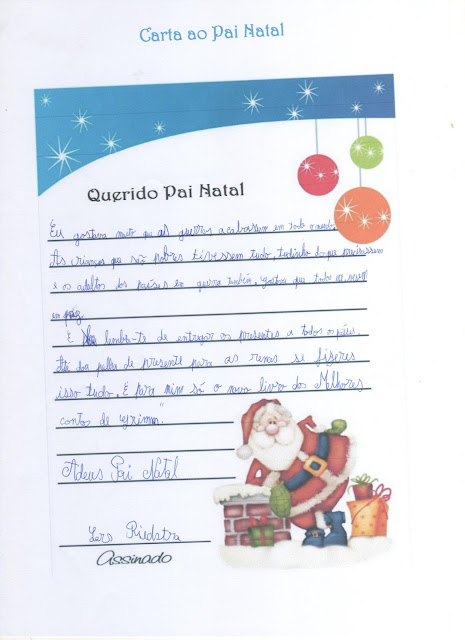 Carta ao Pai Natal
Querido Pai Natal
Eu gostava muito que as guerras acabassem em todo o mundo.
As crianças que são pobres tivessem tudo, tudinho do que precisassem
e os adultos dos países em guerra também, gostava que todo
em paz.
E lembra-te de entregar os presentes a todos os países.
Até dou palha de presente para as renas se fizeres
isso tudo. E para mim só o novo livro dos Melhores
contos de Grimm."
Adeus Pai Natal
Riedstra
Assinado